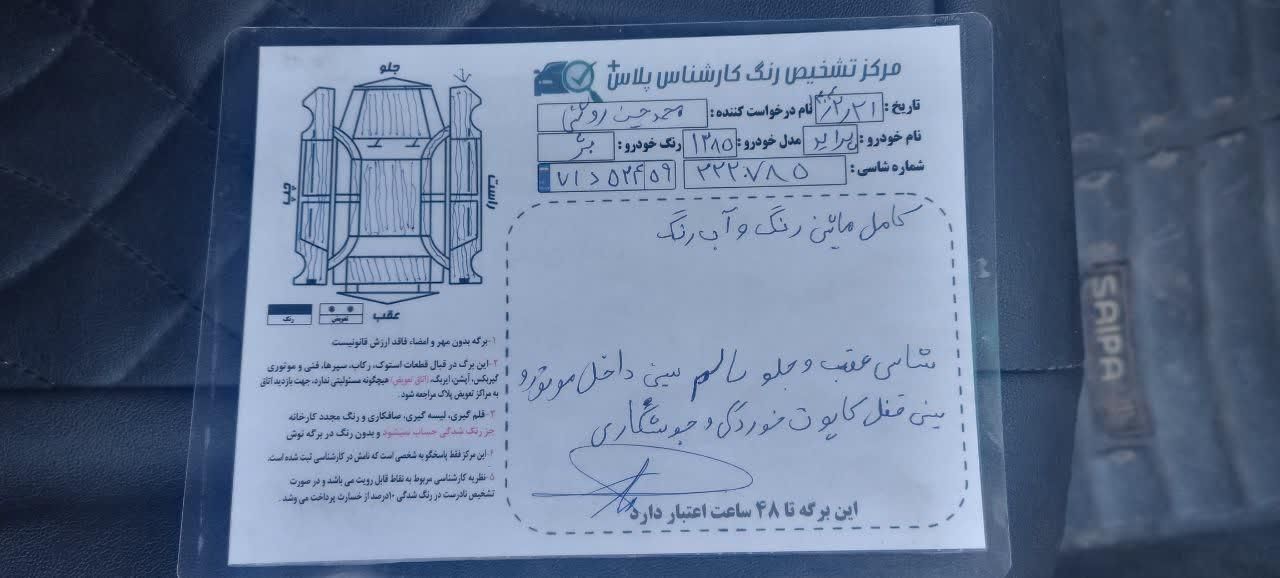 مرکز تشخیص رنگ کارشناس پلاس+
تاریخ: ۱۴۰۴/۲/۲۱ نام درخواست کننده: محمد حسین
نام خودرو: پراید مدل خودرو: ۱۳۸۵ رنگ خودرو: بژ
شماره شاسی: ۲۲۲۰۷۸۵ ۷۱ د ۵۲۴ ۵۹
کامل مابین رنگ و آب رنگ
شاسی عقب و جلو سالم سینی داخل موتور و
سینی قفل کاپوت خوردگی و جوشکاری
این برگه تا ۴۸ ساعت اعتبار دارد
جلو
چپ
راست
عقب
رنگ
تعویض
۱-برگه بدون مهر و امضاء فاقد ارزش قانونیست
۲-این برگ در قبال قطعات استوک، رکاب، سپرها، فنی و موتوری
گیربکس، آپشن، ایربگ، (اتاق تعویض) هیچگونه مسئولیتی ندارد، جهت بازدید اتاق
به مراکز تعویض پلاک مراجعه شود.
۳-قلم گیری، لیسه گیری، صافکاری و رنگ مجدد کارخانه
جز رنگ شدگی حساب نمیشود و بدون رنگ در برگه نوش
۴-این مرکز فقط پاسخگو به شخصی است که نامش در کارشناسی ثبت شده است.
۵-نظریه کارشناسی مربوط به نقاط قابل رویت می باشد و در صورت
تشخیص نادرست در رنگ شدگی ۱۰درصد از خسارت پرداخت می وشد.
SAIPA